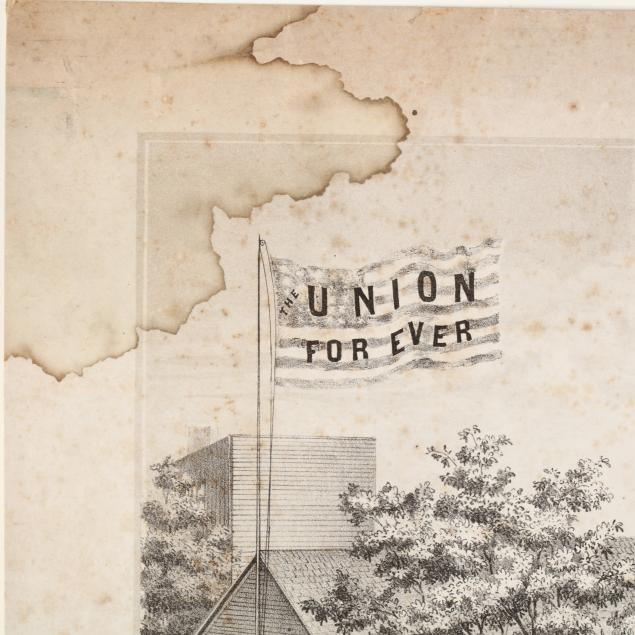 THE UNION
FOR EVER